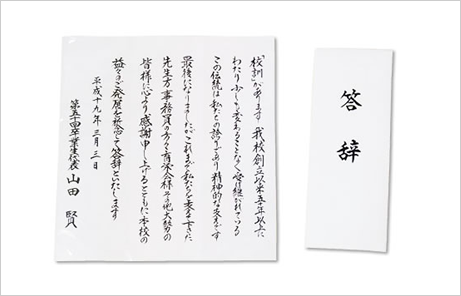 「校訓」があります 我校創立以来五十年以上に
わたり少しも変わることなく受け継がれている
この伝統は私たちの誇りであり精神的な支えです
最後になりましたがこれまで私たちを支えて下さった
先生方事務員の方々育友会様その他大勢の
皆様に心より感謝申し上げるとともに本校の
益々のご発展を祈念して答辞といたします
平成十九年三月三日
第五十四卒業生代表 山田 賢
答辞